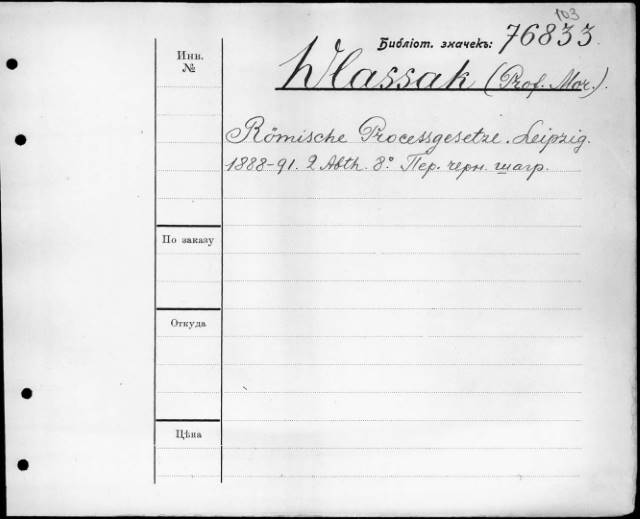 103
Библіот. значекъ: 76833.
Инв.
№
Wlassak (Prof. Mor.).
Römische Processgesetze. Leipzig.
1888-91. 2 Abth. 8° Пер. черн. шагр.
По заказу
Откуда
Цѣна